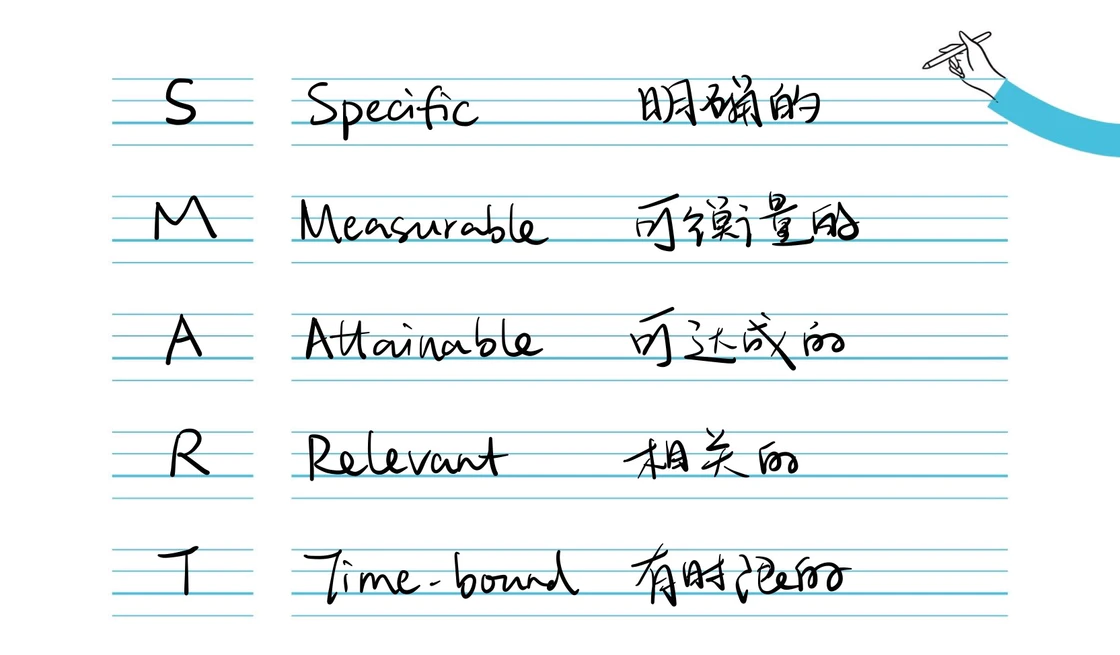 S Specific 明确的
M Measurable 可衡量的
A Attainable 可达成的
R Relevant 相关的
T Time-bound 有时限的